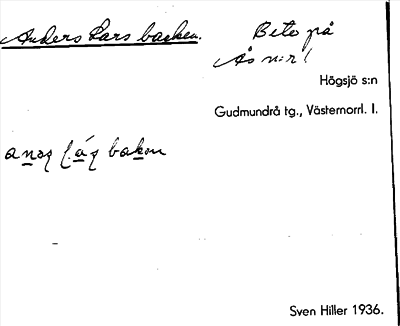 Anders Lars backen.
Bete på
Ås nr 1
Högsjö s:n
Gudmundrå tg., Västernorrl. l.
bakon
Sven Hiller 1936.